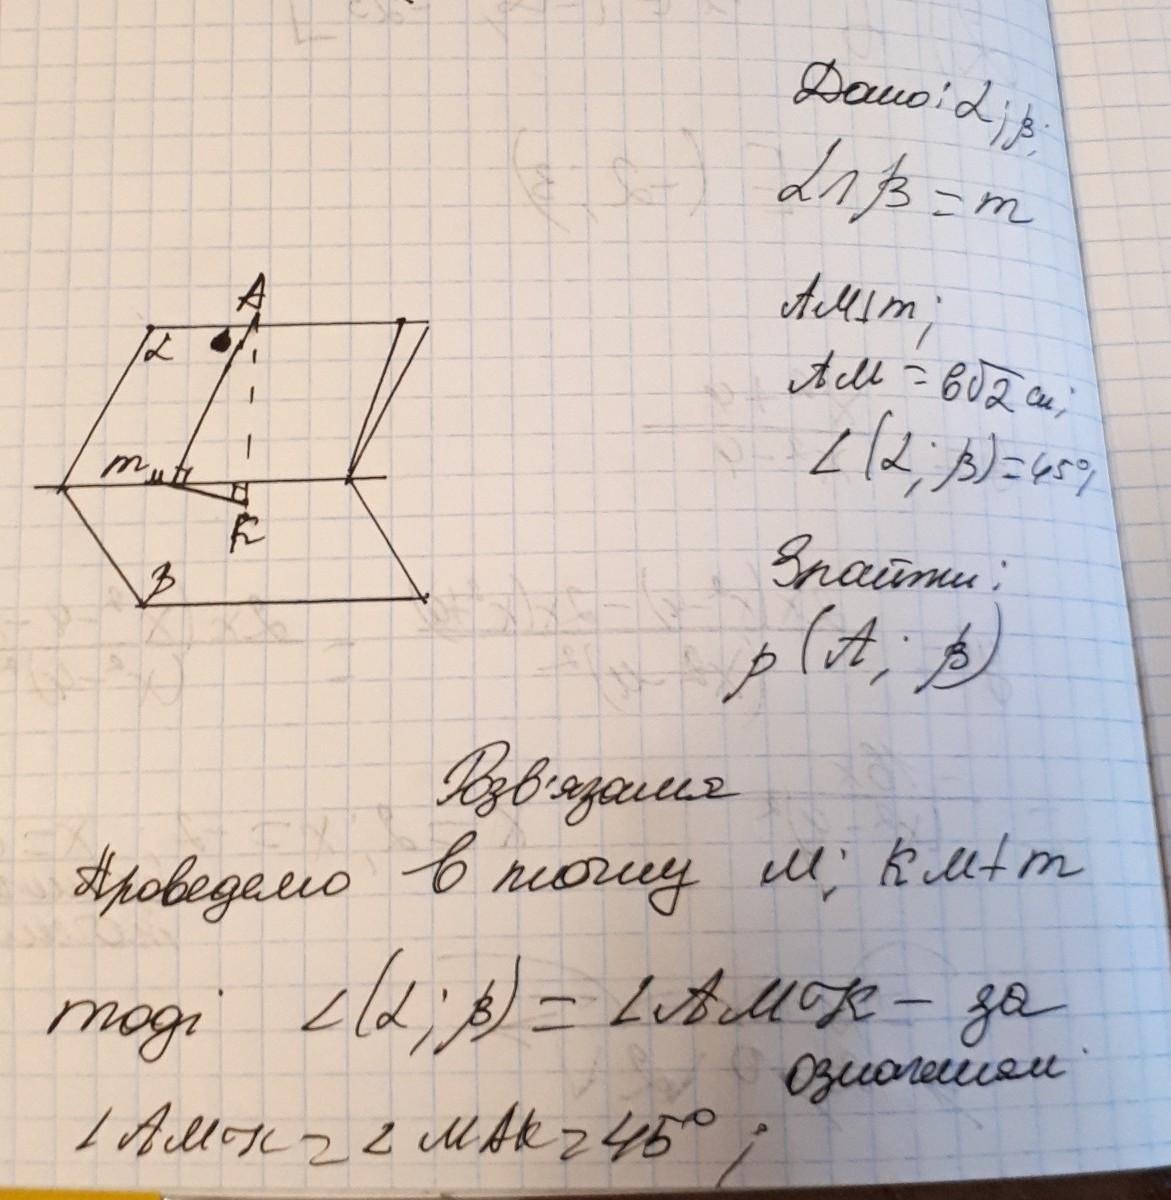 Дано: α; β;
α∩β = m
AM⊥m;
AM = 6√2 см;
∠(α; β)=45°;
Знайти:
ρ(A; β)
A
α
m
M
K
β
Розв'язання
Проведемо в точку M; KM⊥m
тоді ∠(α; β) = ∠AMK – за
означенням
∠AMK = ∠MAK = 45°;